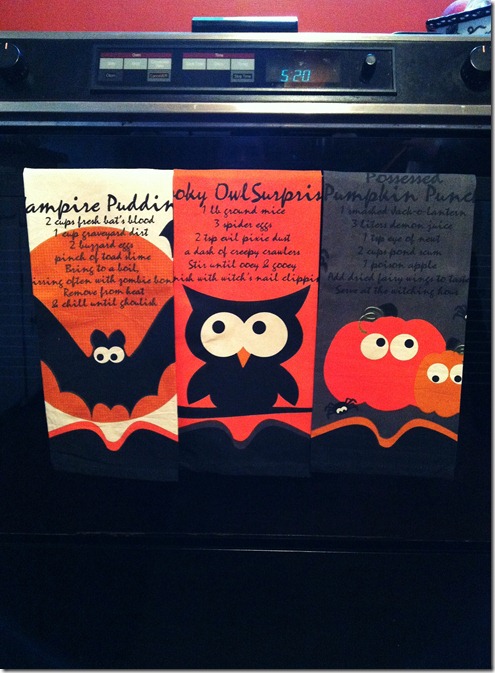 5:20
Vampire Puddin
2 cups fresh bat's blood
1 cup graveyard dirt
2 buzzard eggs
pinch of toad slime
Bring to a boil,
irring often with zombie bon
Remove from heat
& chill until ghoulish
ooky Owl Surpris
1 lb ground mice
3 spider eggs
2 tsp oil pixie dust
a dash of creepy crawlers
Stir until ooey & gooey
nish with witch's nail clippin
Possessed
Pumpkin Punc
1 smashed Jack-o-lantern
3 liters demon juice
1 tsp eye of newt
2 cups pond scum
1 poison apple
Add dried fairy wings to taste
Serve at the witching hour